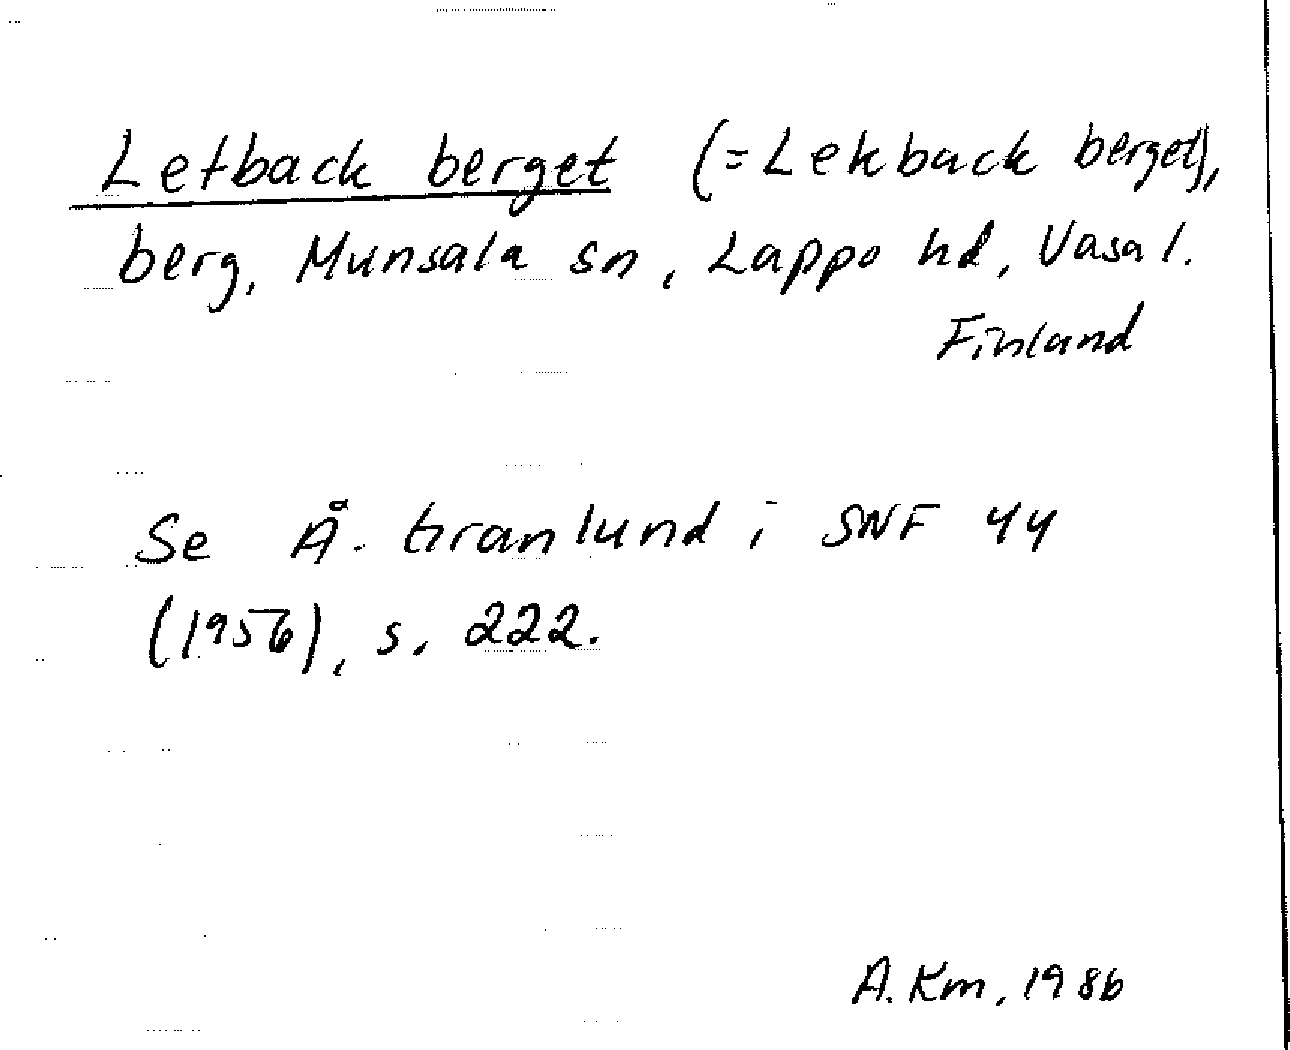 Letback berget (=Lekback berget),
berg, Munsala sn, Lappo hd, Vasa l.
Finland
Se Å. Granlund i SNF 44
(1956), s. 222.
A. Km, 1986